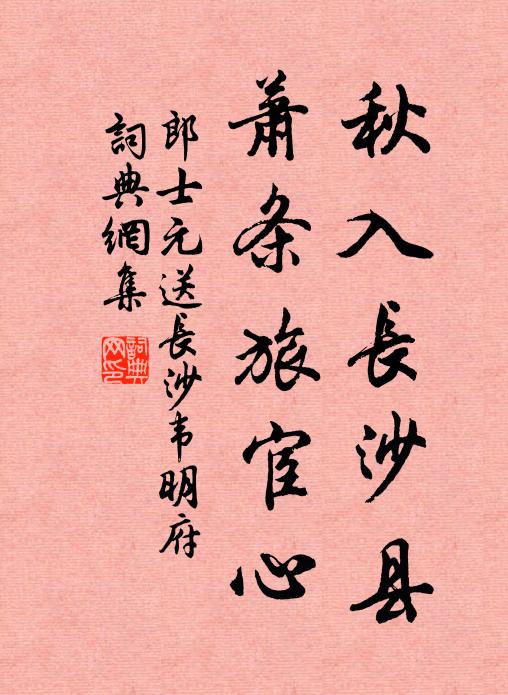 秋入長沙县
萧条旅宦心
郎士元送長沙韦明府
詞典網集
詞典网印